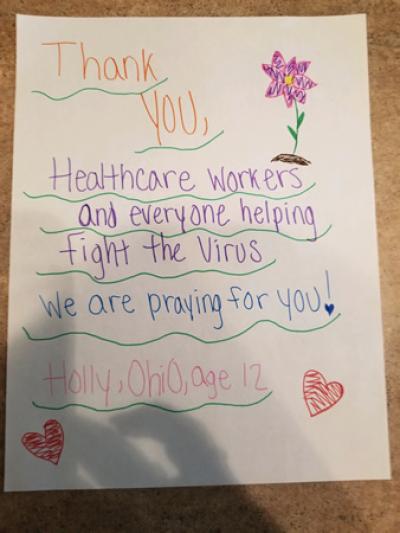 Thank
YOU,
Healthcare workers
and everyone helping
fight the Virus
We are praying for YOU!
Holly, OhiO, age 12